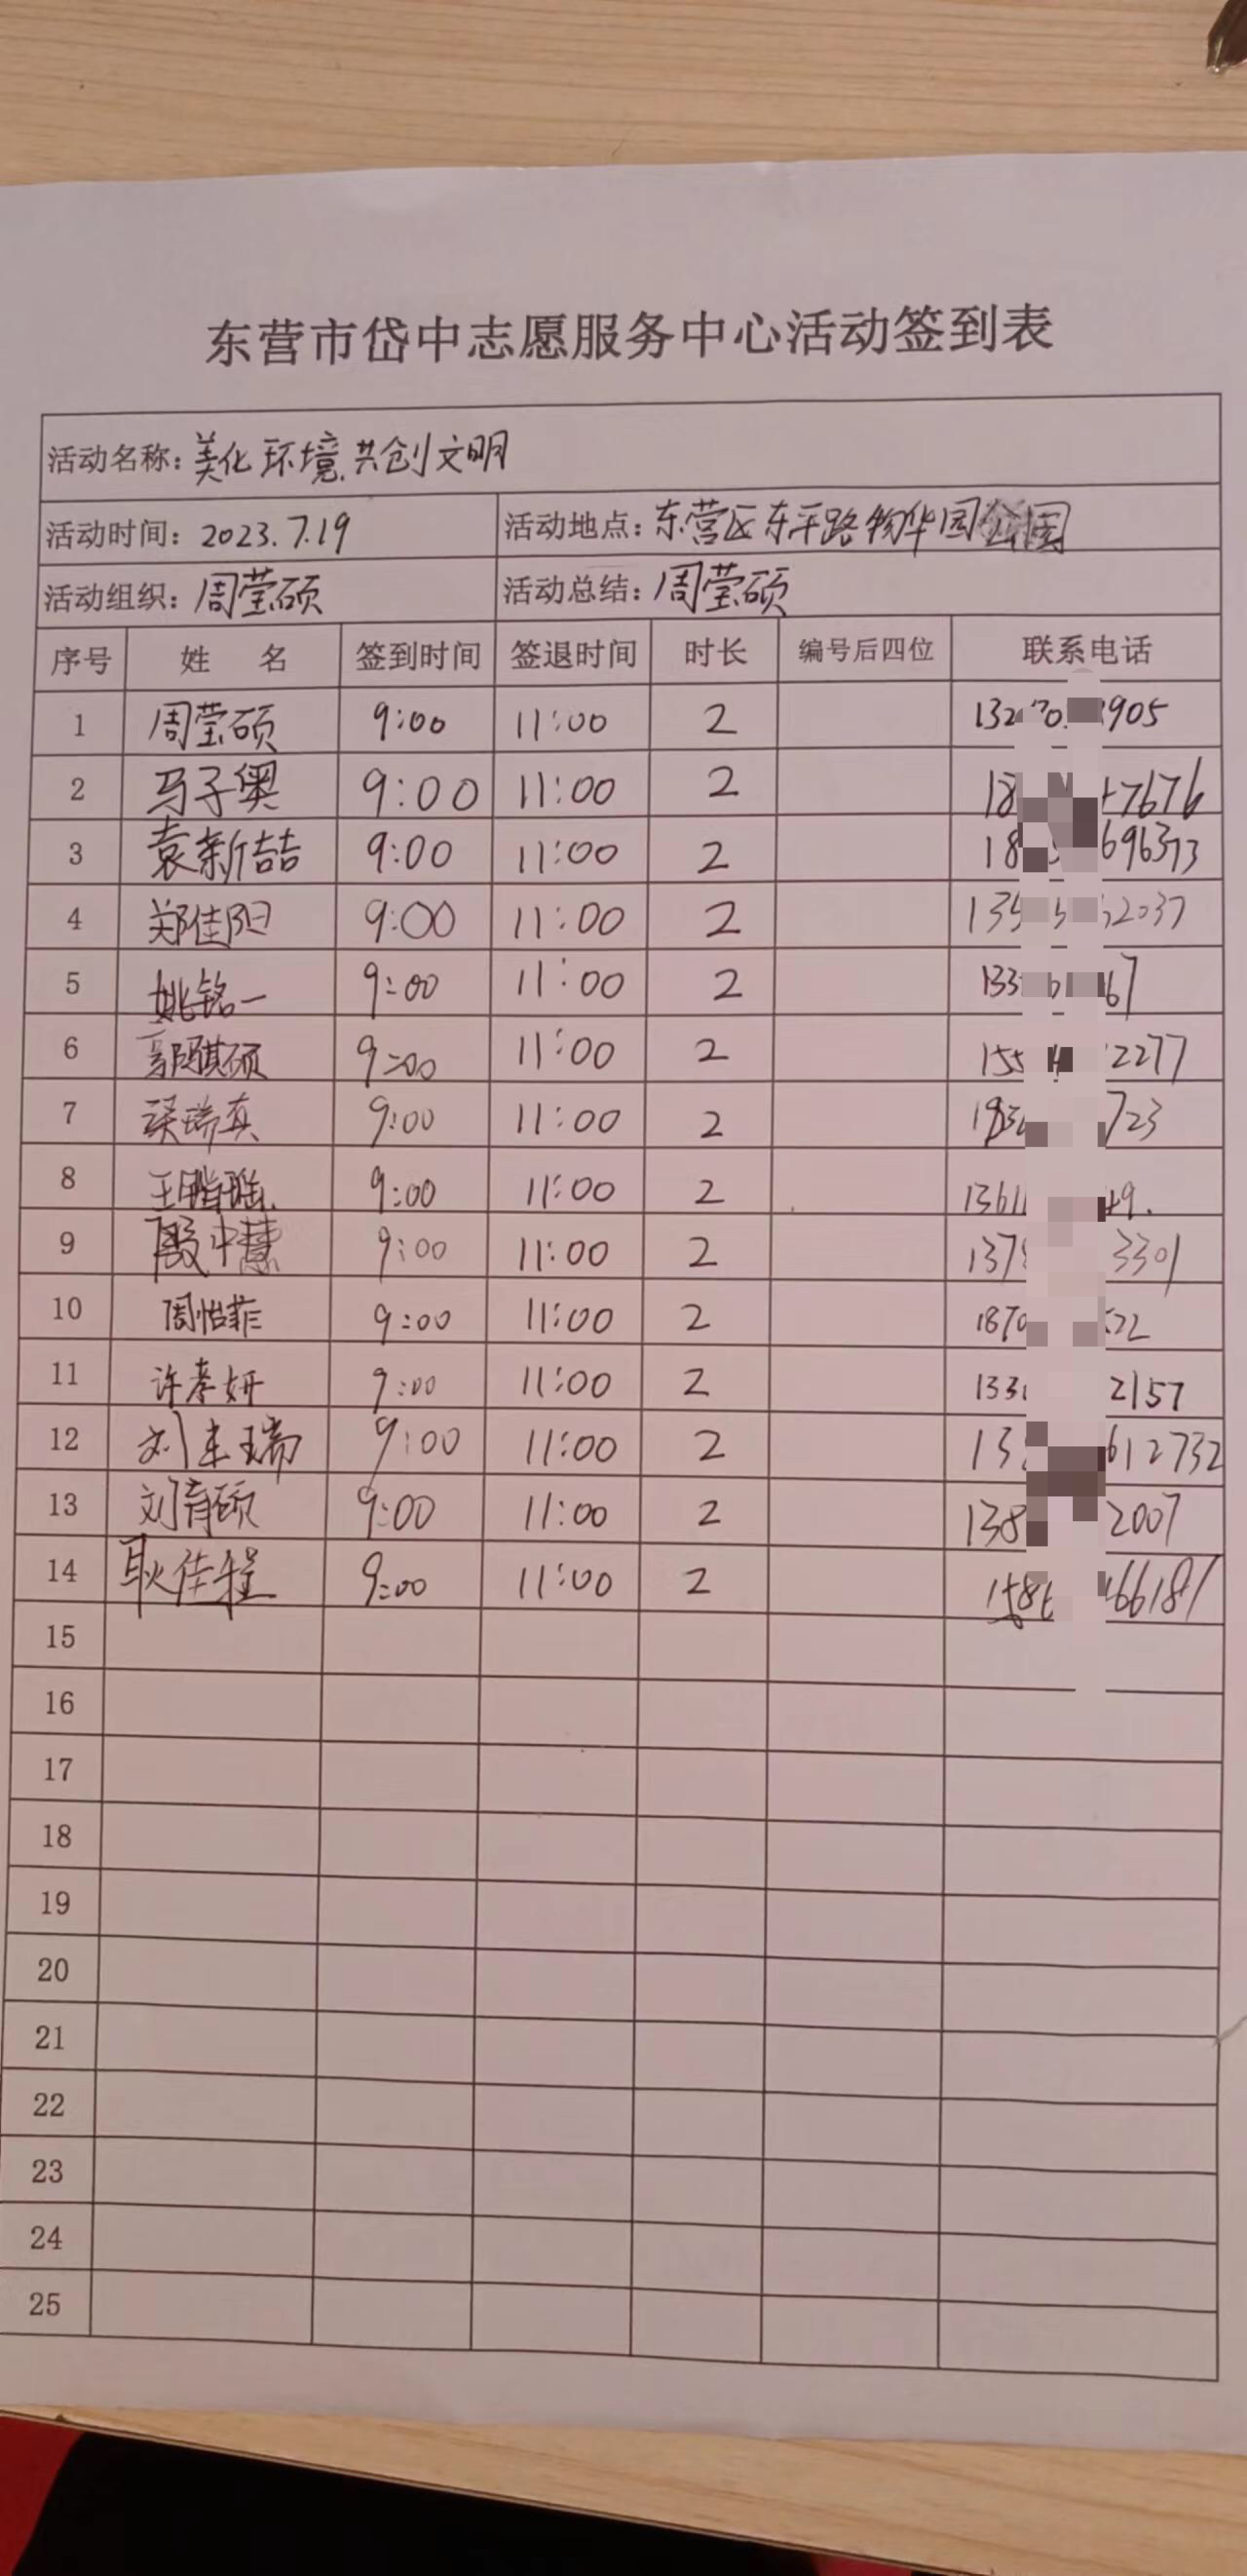 东营市岱中志愿服务中心活动签到表
活动名称：美化环境共创文明
活动时间：2023.7.19 活动地点：东营区东平路物华园公园
活动组织：周莹硕 活动总结：周莹硕
序号 姓 名 签到时间 签退时间 时长 编号后四位 联系电话
1 周莹硕 9:00 11:00 2 132 905
2 马子奥 9:00 11:00 2 18 7676
3 袁新喆 9:00 11:00 2 18 696373
4 郑佳阳 9:00 11:00 2 135 2037
5 姚铭一 9:00 11:00 2 133 67
6 郭骐硕 9:00 11:00 2 155 2277
7 梁瑞真 9:00 11:00 2 723
8 9:00 11:00 2 1361 49.
9 殷中慧 9:00 11:00 2 137 3301
10 周怡菲 9:00 11:00 2 187 22
11 许孝妍 9:00 11:00 2 133 2157
12 刘东瑞 9:00 11:00 2 13 612732
13 刘育硕 9:00 11:00 2 138 2007
14 耿佳程 9:00 11:00 2 158 66187
15
16
17
18
19
20
21
22
23
24
25